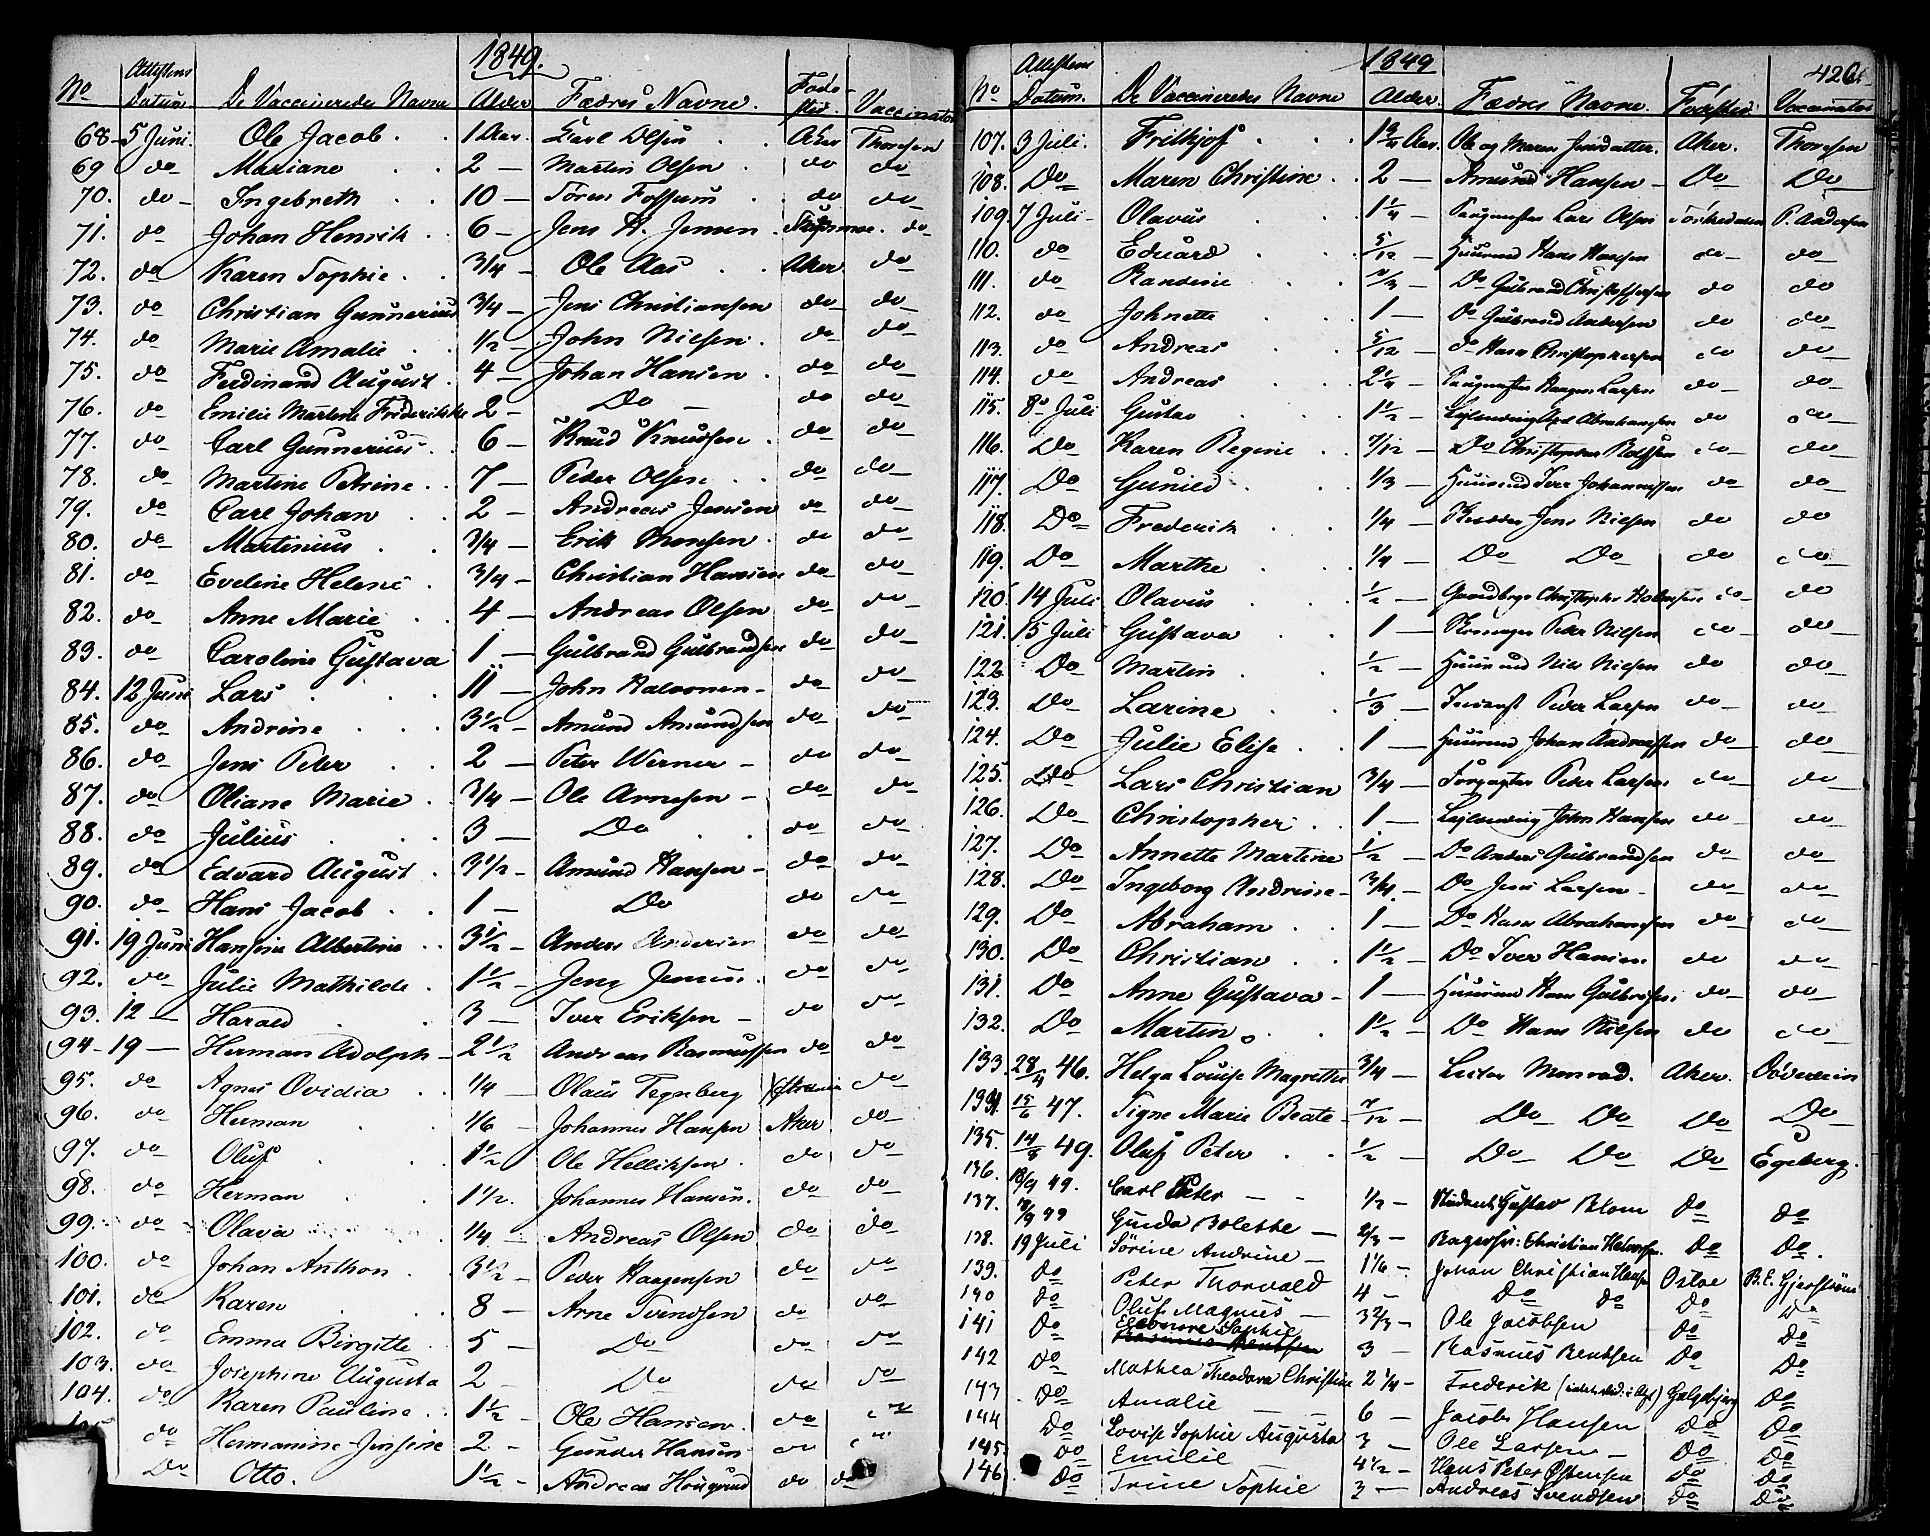 1849.
No Attestens Datum De Vaccineredes Navne Alder Fædres Navne. Føde-sted. Vaccinator
68 5 Juni. Ole Jacob 1 Aar Carl Olsen Aker Thoresen
69 do Mariane 2 Martin Olsen do do
70. do Ingebreth 10 Sören Fossum do do
71. do Johan Henrik 6 Jens H. Jensen do
72. do Karen Sophie 3/4 Ole Aas Aker do
73. do Christian Gunnerius 3/4 Jens Christiansen do do
74. do Marie Amalie 1/2 John Nielsen do do
75. do Ferdinand August 4 Johan Hansen do do
76. do Emilie Martine Frederikke 2 Do do do
77. do Carl Gunnerius 6 Knud Knudsen do do
78. do Martine Petrine 7 Peder Olsen do do
79. do Carl Johan 2 Andreas Jensen do do
80. do Martinius 3/4 Erik Monsen do do
81. do Eveline Helene 3/4 Christian Hansen do do
82. do Anne Marie 4 Andreas Olsen do do
83. do Caroline Gustava 1 Gulbrand Gulbrandsen do do
84. 12 Juni Lars 11 John Halvorsen do do
85. do Andrine 3 1/2 Amund Amundsen do do
86. do Jens Peter 2 Peter Werner do do
87. do Oliane Marie 3/4 Ole Arnesen do do
88. do Julius 3 Do do do
89. do Edvard August 3 1/2 Amund Hansen do do
90. do Hans Jacob 1 Do do do
91. 19 Juni Hansine Albertine 3 1/2 Anders Andersen do do
92. do Julie Mathilde 1 1/2 Jens Jensen do do
93. 12 Harald 3 Iver Eriksen do do
94 19 Herman Adolph 2 1/2 Andreas Rasmussen do do
95. do Agnes Ovidia 1/4 Olaus Tegneberg do
96. do Herman 1/6 Johannes Hansen Aker do
97. do Oluf 1 1/2 Ole Helliksen do do
98. do Herman 1 1/2. Johannes Hansen. do do
99. do Olava 1/4 Andreas Olsen do do
100. do Johan Anthon 3 1/2 Peder Haagensen do do
101. do Karen 8 Arne Svendsen do do
102. do Emma Birgitte 5 Do do do
103. do Josephine Augusta 2 Do do do
104. do Karen Pauline 1 1/2 Ole Hansen do
do Hermanine Jensine 2 Gunder Hansen do
Do Otto. 1 1/2 Andreas do do
1849 426
No Attestens Datum. De Vaccineredes Navne Alder Fædres Navne. Fødested Vaccinator
107. 3 Juli. Frithjof 1 3/4 Aar. Ole og Maren Jensdatter. Aker. Thoresen
108. Do Maren Christine 2 Amund Hansen Do Do
109. 7 Juli Olavus 1 1/4 Lars Olsen Sörkedalen P. Andersen
110. do Eduard 5/12 Huusmd Hans Hansen do do
111. do Randine Do Gulbrand Christophersen do do
112. do Johnette 1 Do Gulbrand Andersen do do
113. do Andreas 5/12 do Hans Christophersen do do
114. do Andreas 2 1/4 Haagen Larsen do do
115. 8 Juli Gustav 1 1/2 Abrahamsen do do
116. Do Karen Regine 7/12 Do Christopher do do
117. Do Gunild 1/3 Huusmd Iver Johannessen do do
118. Do Frederik 1/4 Skrædder Jens Nielsen do do
119. Do Marthe 1/4 Do Do do do
120. 14 Juli Olavus 1/2 Christopher Halvorsen do do
121. 15 Juli Gustava 1 Peder Nielsen do do
122. Do Martin 1/2 Huusmd Niels Nielsen do do
123. Do Larine 1/3 Peder Larsen do do
124. Do Julie Elise 1 Huusmd Johan Andreassen do do
125. Do Lars Christian 3/4 Forpagter Peder Larsen do do
126. Do Christopher 1 Leilending John Hansen do do
127. Do Annette Martine 1/2 Do Anders Gulbrandsen do do
128. Do Ingeborg Andrine 3/4 Do Jens Larsen do do
129. Do Abraham 1 Do Hans Abrahamsen do do
130. Do Christian 1 1/2 Do Iver Hansen do do
131. Do Anne Gustava 1 Huusmd Hans Gulbrandsen do do
132. Do Martin 1 1/2 Do Hans Nielsen do do
133. 28/4 46. Helga Louise Magrethe 3/4 Lector Monrad. Aker.
134. 15/6 47. Signe Marie Beate 7/12 Do Do Do Do
135. 14/8 49. Oluf Peter 1/2 Do Do Do Egeberg.
136. 18/9 49. Carl Peter 1/2 Student Gustav Blom Do do
137. 18/9 49 Guida Bolette 2/3 Bagersv: Christian Halvorsen. Do Do.
138. 19 Juli Sörine Andrine 1 1/6 Johan Christian Hansen Ostöe B. E. Gjerström
139. do Peter Thorvald 4 Do do Do Do
140 do Oluf Magnus 3 2/3 Ole Jacobsen Do Do
141 Do Eleonore Sophie 3 Rasmus Bentsen Do Do
142 Do Mathea Theodora Christine 2 1/4 Frederik Galgebjerg Do
143 Do Amalie 6 Jacob Hansen Do Do
144 Do Lovise Sophie Augusta 3 Ole Larsen Do Do
145 Do Emilie 4 1/2 Hans Peter Østensen Do Do
146 Do Trine Sophie 3 Andreas Svendsen Do Do